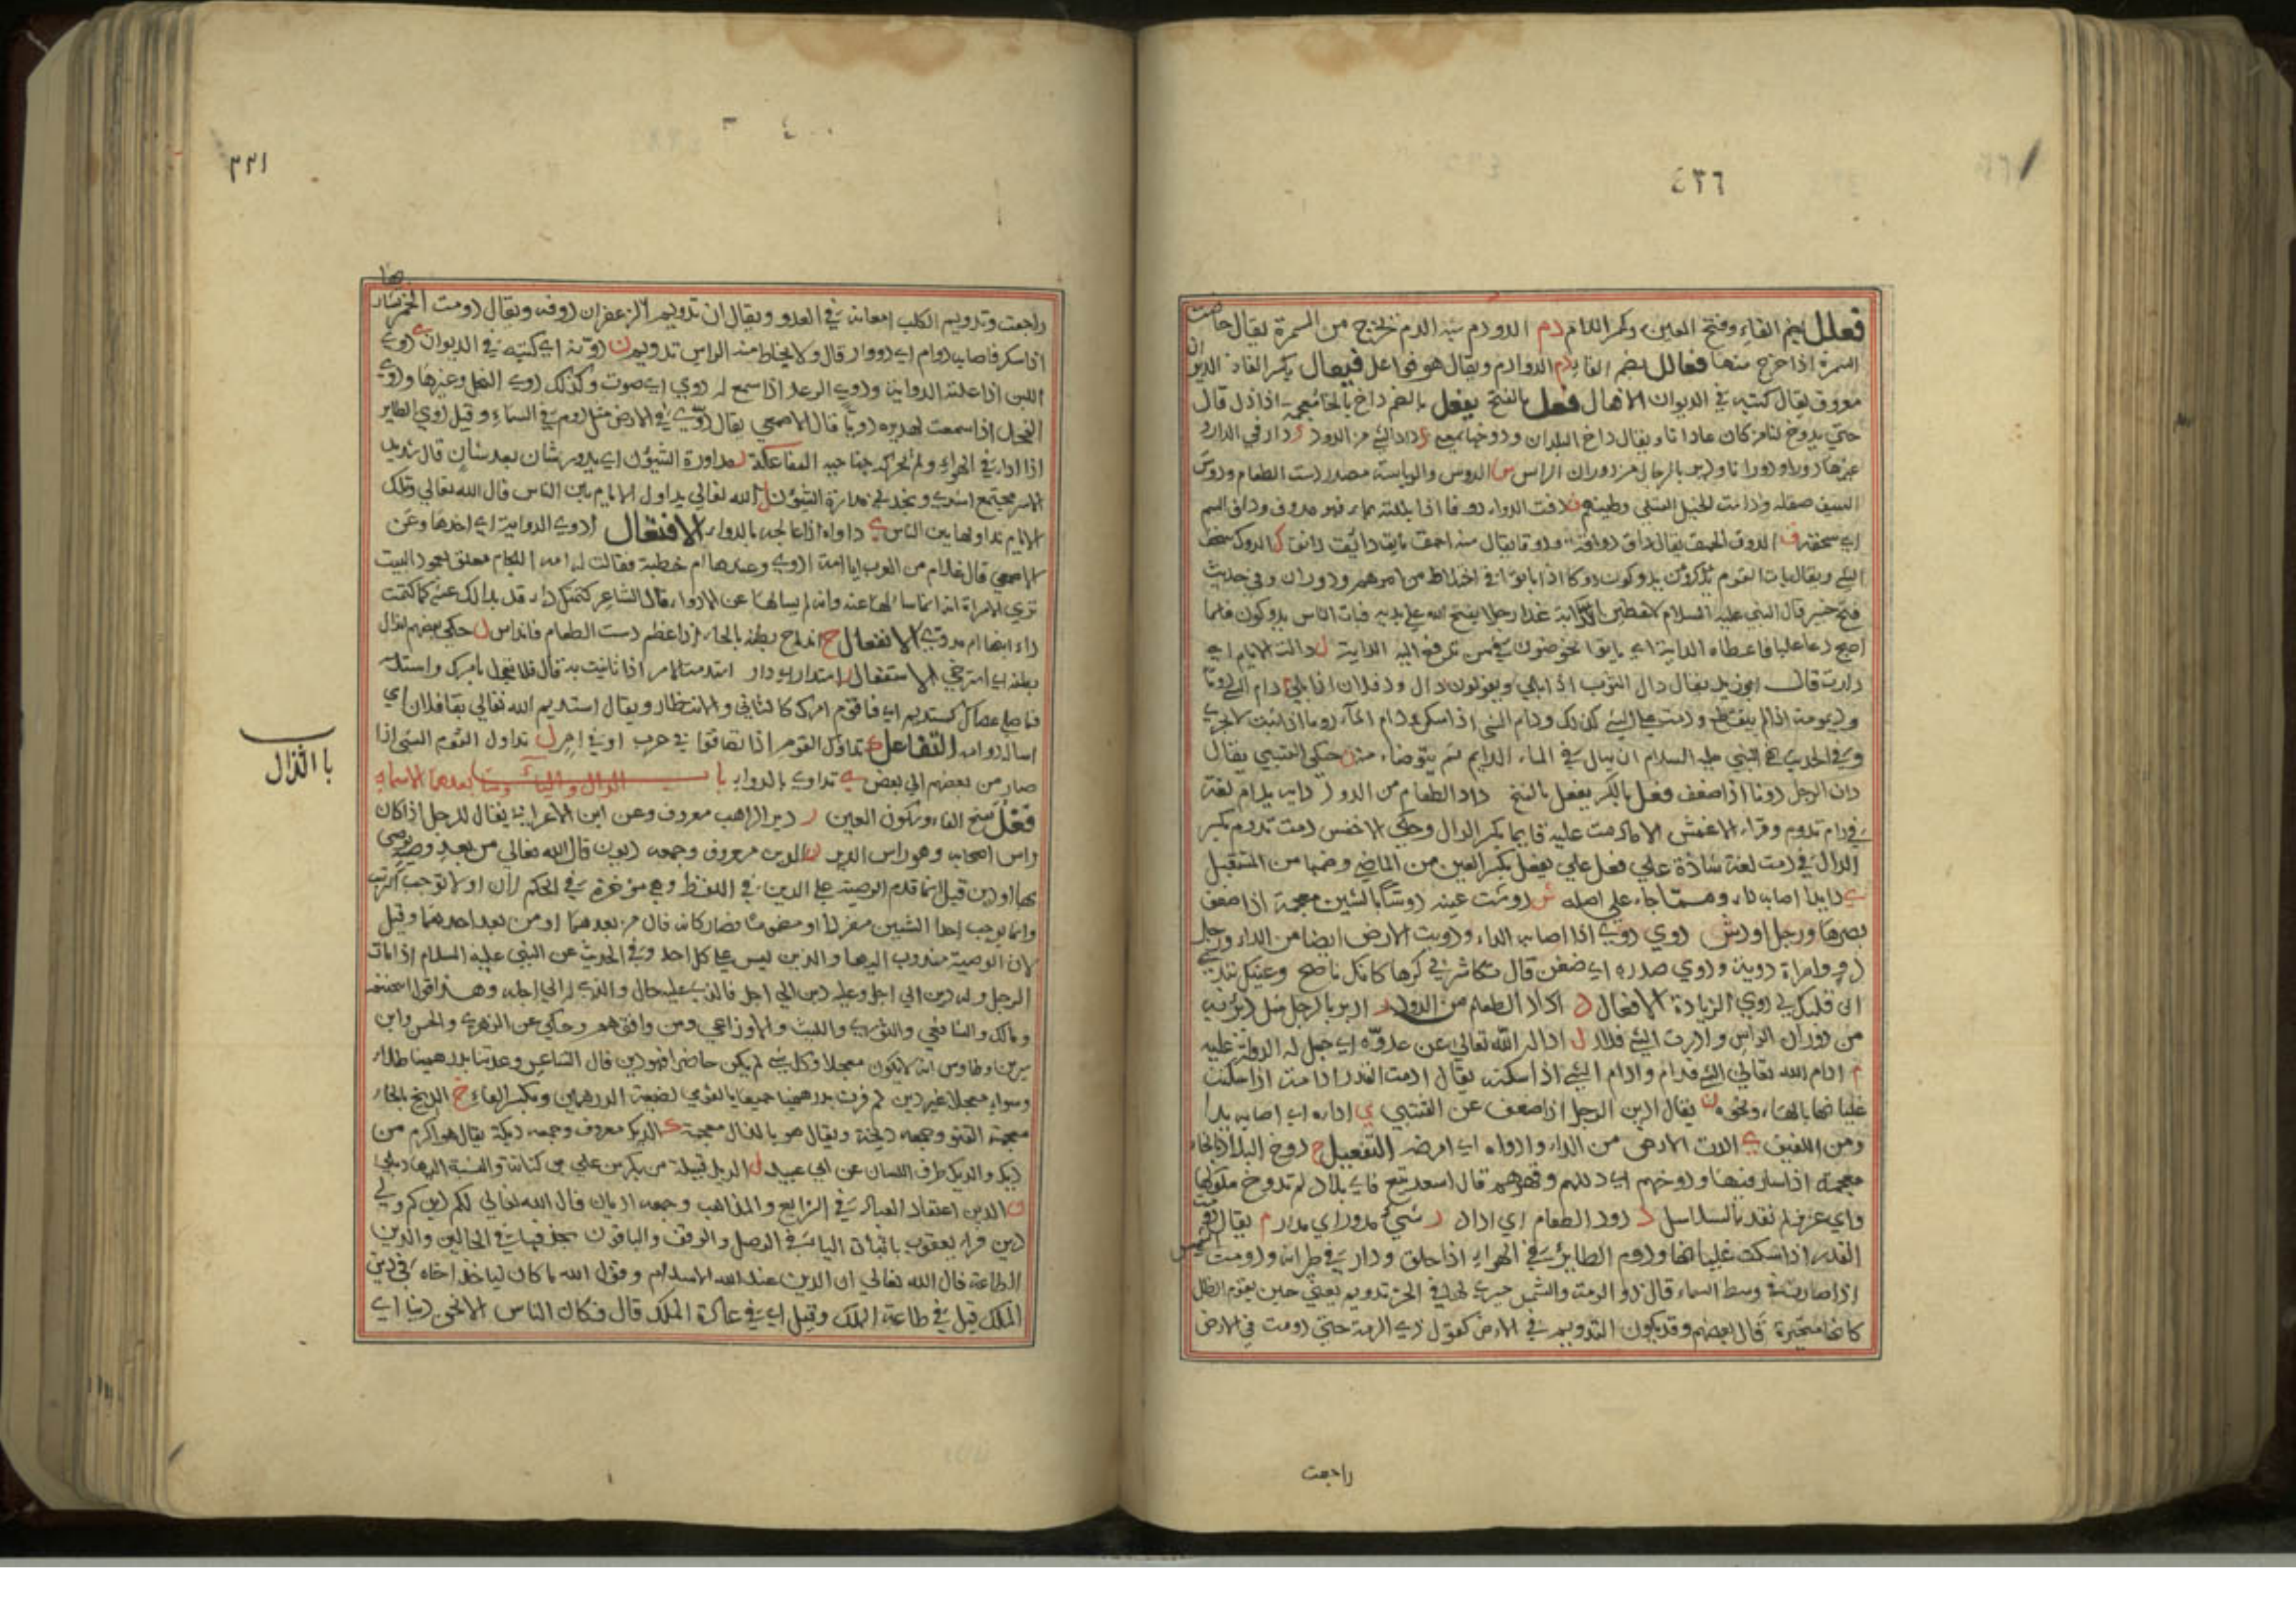 ٤٣٦
فعلل بضم الفاء وفتح العين وكسر اللام دم الدودم شبه الدم يخرج من السمرة يقال حاضت
السمرة اذا خرج منها فعالل بضم الفا دم الدوادم ويقال هو فواعل فيعال بكسر الفا ن الديوان
معروف يقال كتبه في الديوان الافعال فعل بالفتح يفعل بالضم داخ بالخا معجمة اذا ذل قال
حتي يدوخ لنا من كان عادانا ويقال داخ البلدان ودوخها بمعني د داد الشي من الدود ر دار في الدار و
غيرها دورا ودورانا ودير بالرجل من دوران الراس س الدوس والدياسة مصدر دست الطعام ودوس
السيف صقله وداست الخيل القتلى وطيتهم ف دافت الدواء دوفا اذا بللته بماء فهو مدوف ودائف السم
اي سحقته ق الدوق الحمق يقال داق دواقة ودوقا يقال منه احمق مايق دائق ك الدوك سحق
الشي ويقال بات القوم يدوكون دوكا اذا باتوا في اختلاط من امرهم ودوران وفي حديث
فتح خيبر قال النبي عليه السلام لاعطين الراية غدا رجلا يفتح الله علي يديه فبات الناس يدوكون فلما
اصبح دعا عليا فاعطاه الراية اي باتوا يخوضون في من ترفع اليه الراية ل دالت الايام اي
دارت قال ابو زيد يقال دال الثوب اذا بلي ويقولون دال ود فلان اذا بلي م دام الشي دوما
وديمومة اذا لم ينقطع ودمت على الشي كذلك ودام الشي اذا سكن ودام الماء دوما اذا ثبت لا يجري
وفي الحديث نهي النبي عليه السلام ان يبال في الماء الدايم ثم يتوضاء منه ن حكي القتيبي يقال
دان الرجل دونا اذا ضعف فعل بالكسر يفعل بالفتح داد الطعام من الدود م دام يدام لغة
في دام تدوم وقراء الاعمش الا ما دمت عليه قايما بكسر الدال وحكي الاخفش دمت تدوم بكسر
الدال في دمت لغة شاذة علي فعل علي يفعل بكسر العين من الماضي وضمها من المستقبل
ي داء يداء اصابه داء ومما جاء علي اصله ش دوشت عينه دوشا بالشين معجمة اذا ضعف
بصرها ورجل ادوش دوي دوي اذا اصابه الداء ودويت الارض ايضا من الداء ورجل
دو وامراة دوية ودوي صدره اي ضغن قال تكاشرني كرها كانك ناصح وعينك تبدي
ان قلبك لي دوي الزيادة الافعال د اداد الطعام من الدود ر ادير بالرجل مثل دير به
من دوران الراس وادرت الشي فدار ل ادال الله تعالي عن عدوه اي جعل له الدولة عليه
م ادام الله تعالي الشي فدام وادام الشي اذا سكنه يقال ادمت القدر اذا مت اذا سكنت
غليانها بالماء ونحوه ن يقال ادين الرجل اذا ضعف عن القتبي ي اداءه اي اصابه بداء
ومن اللفيف ي ادات الارض من الداء وادواه اي امرضه التفعيل خ دوخ البلاد بالخاء
معجمة اذا سار فيها ودوخهم اي ذللهم وقهرهم قال اسعد تبع فاي بلاد لم تدوخ ملوكها
واي عزيز لم نقد بالسلاسل د دود الطعام اي اداد ر شيء مدور اي مدار م يقال دومت
القدر اذا سكنت غليانها ودوم الطاير في الهواء اذا حلق ودار في طيرانه ودومت الشمس
اذا صارت في وسط السماء قال ذو الرمة والشمس حيري لها في الجو تدويم يعني حين يقوم الظل
كانها متحيرة قال بعضهم وقد يكون التدويم في الارض كقول ذي الرمة حتي دومت في الارض
راجعت
٣٣١
راجعت وتدويم الكلب امعانه في العدو ويقال ان تدويم الزعفران دوفه ويقال دومت الخمر شاربها
اذا سكر فاصابه دوام اي دووار قال ولا يخالط منه الراس تدويم ن دونه اي كتبه في الديوان ي دوي
اللبن اذا علته الدواية ودوي الرعد اذا سمع له دوي اي صوت وكذلك دوي النحل وغيرها ودوي
الفحل اذا سمعت لهديره دويا قال الاصمعي يقال دوي في الارض مثل دوم في السماء وقيل دوي الطاير
اذا دار في الهواء ولم يحرك جناحيه المفاعلة ر مداورة الشيون اي يدور شان بعد شان قال
مجتمع اشدي ونجذني مداورة الشيون ل الله تعالي يداول الايام بين الناس قال الله تعالي وتلك
الايام نداولها بين الناس ي داواه اذا عالجه بالدواء الافتعال ادوي الدواية اي اخذها وعن
الاصمعي قال غلام من العرب يا امه ادوي وعندها ام خطبة فقالت له امه اللجام معلق بعمود البيت
تري الامراة انه انما سالها عنه وانه لم يسالها عن الادواء قال الشاعر كتمتك داء قد بدا لك عنه كما كتمت
داء ابنها ام مدوي الانفعال ح انداح بطنه بالحاء اذا عظم دست الطعام فانداس ل حكي بعضهم اندال
بطنه اي استرخي الاستفعال ر استدار بودار م استدمت الامر اذا تانيت به قال فلا تعجل بامرك واستدمه
فما صلي عصاك كمستديم اي فاقوم امرك كالتاني والانتظار ويقال استديم الله تعالي بقا فلان اي
اساله دوامه التفاعل ك تداوك القوم اذا تضايقوا في حرب او في امر ل تداول القوم الشي اذا
صار من بعضهم الي بعض ي تداوي بالدواء باب الدال والياء وما بعدهما الاسماء
فعل بفتح الفاء وسكون العين ر دير الراهب معروف وعن ابن الاعرابي يقال للرجل اذا كان
راس اصحابه وهو راس الدير ن الدين معروف وجمعه ديون قال الله تعالي من بعد وصية يوصي
بها او دين قيل انما قدم الوصية علي الدين في اللفظ وهي مؤخرة في الحكم لان او لا توجب الترتيب
وانما توجب احد الشيين مفردا او مضموما فصار كانه قال من بعدهما او من بعد احدهما وقيل
لان الوصية مندوب اليها والدين ليس علي كل احد وفي الحديث عن النبي عليه السلام اذا مات
الرجل وله دين الي اجل وعليه دين الي اجل فالذي عليه حال والذي له الي اجله وهذا قول ابي حنيفة
ومالك والشافعي والثوري والليث والاوزاعي ومن وافقهم وحكي عن الزهري والحسن وابن
سيرين وطاوس انه لا يكون معجلا وكل شي لم يكن حاضرا فهو دين قال الشاعر وعدتنا بدرهمينا طلاء
وسواء معجلا غير دين ومكسر الفاء خ الديخ بالخاء
معجمة القنو وجمعه ديخة ويقال هو بالذال معجمة ك الديك معروف وجمعه ديكة يقال هو اكرم من
ديك والديك طرف اللسان عن ابي عبيد ل الديل قبيلة من بكر بن علي من كنانة والنسبة اليها ديلي
ن الدين اعتقاد العباد في الشرايع والمذاهب وجمعه اديان قال الله تعالي لكم دينكم ولي
دين قراء يعقوب باثبات الياء في الوصل والوقف والباقون بحذفها في الحالين والدين
الطاعة قال الله تعالي ان الدين عند الله الاسلام وقول الله ما كان لياخذ اخاه في دين
الملك قيل في طاعة الملك وقيل اي في عادة الملك قال فكان الناس الا نحن دينا اي
باب الذال